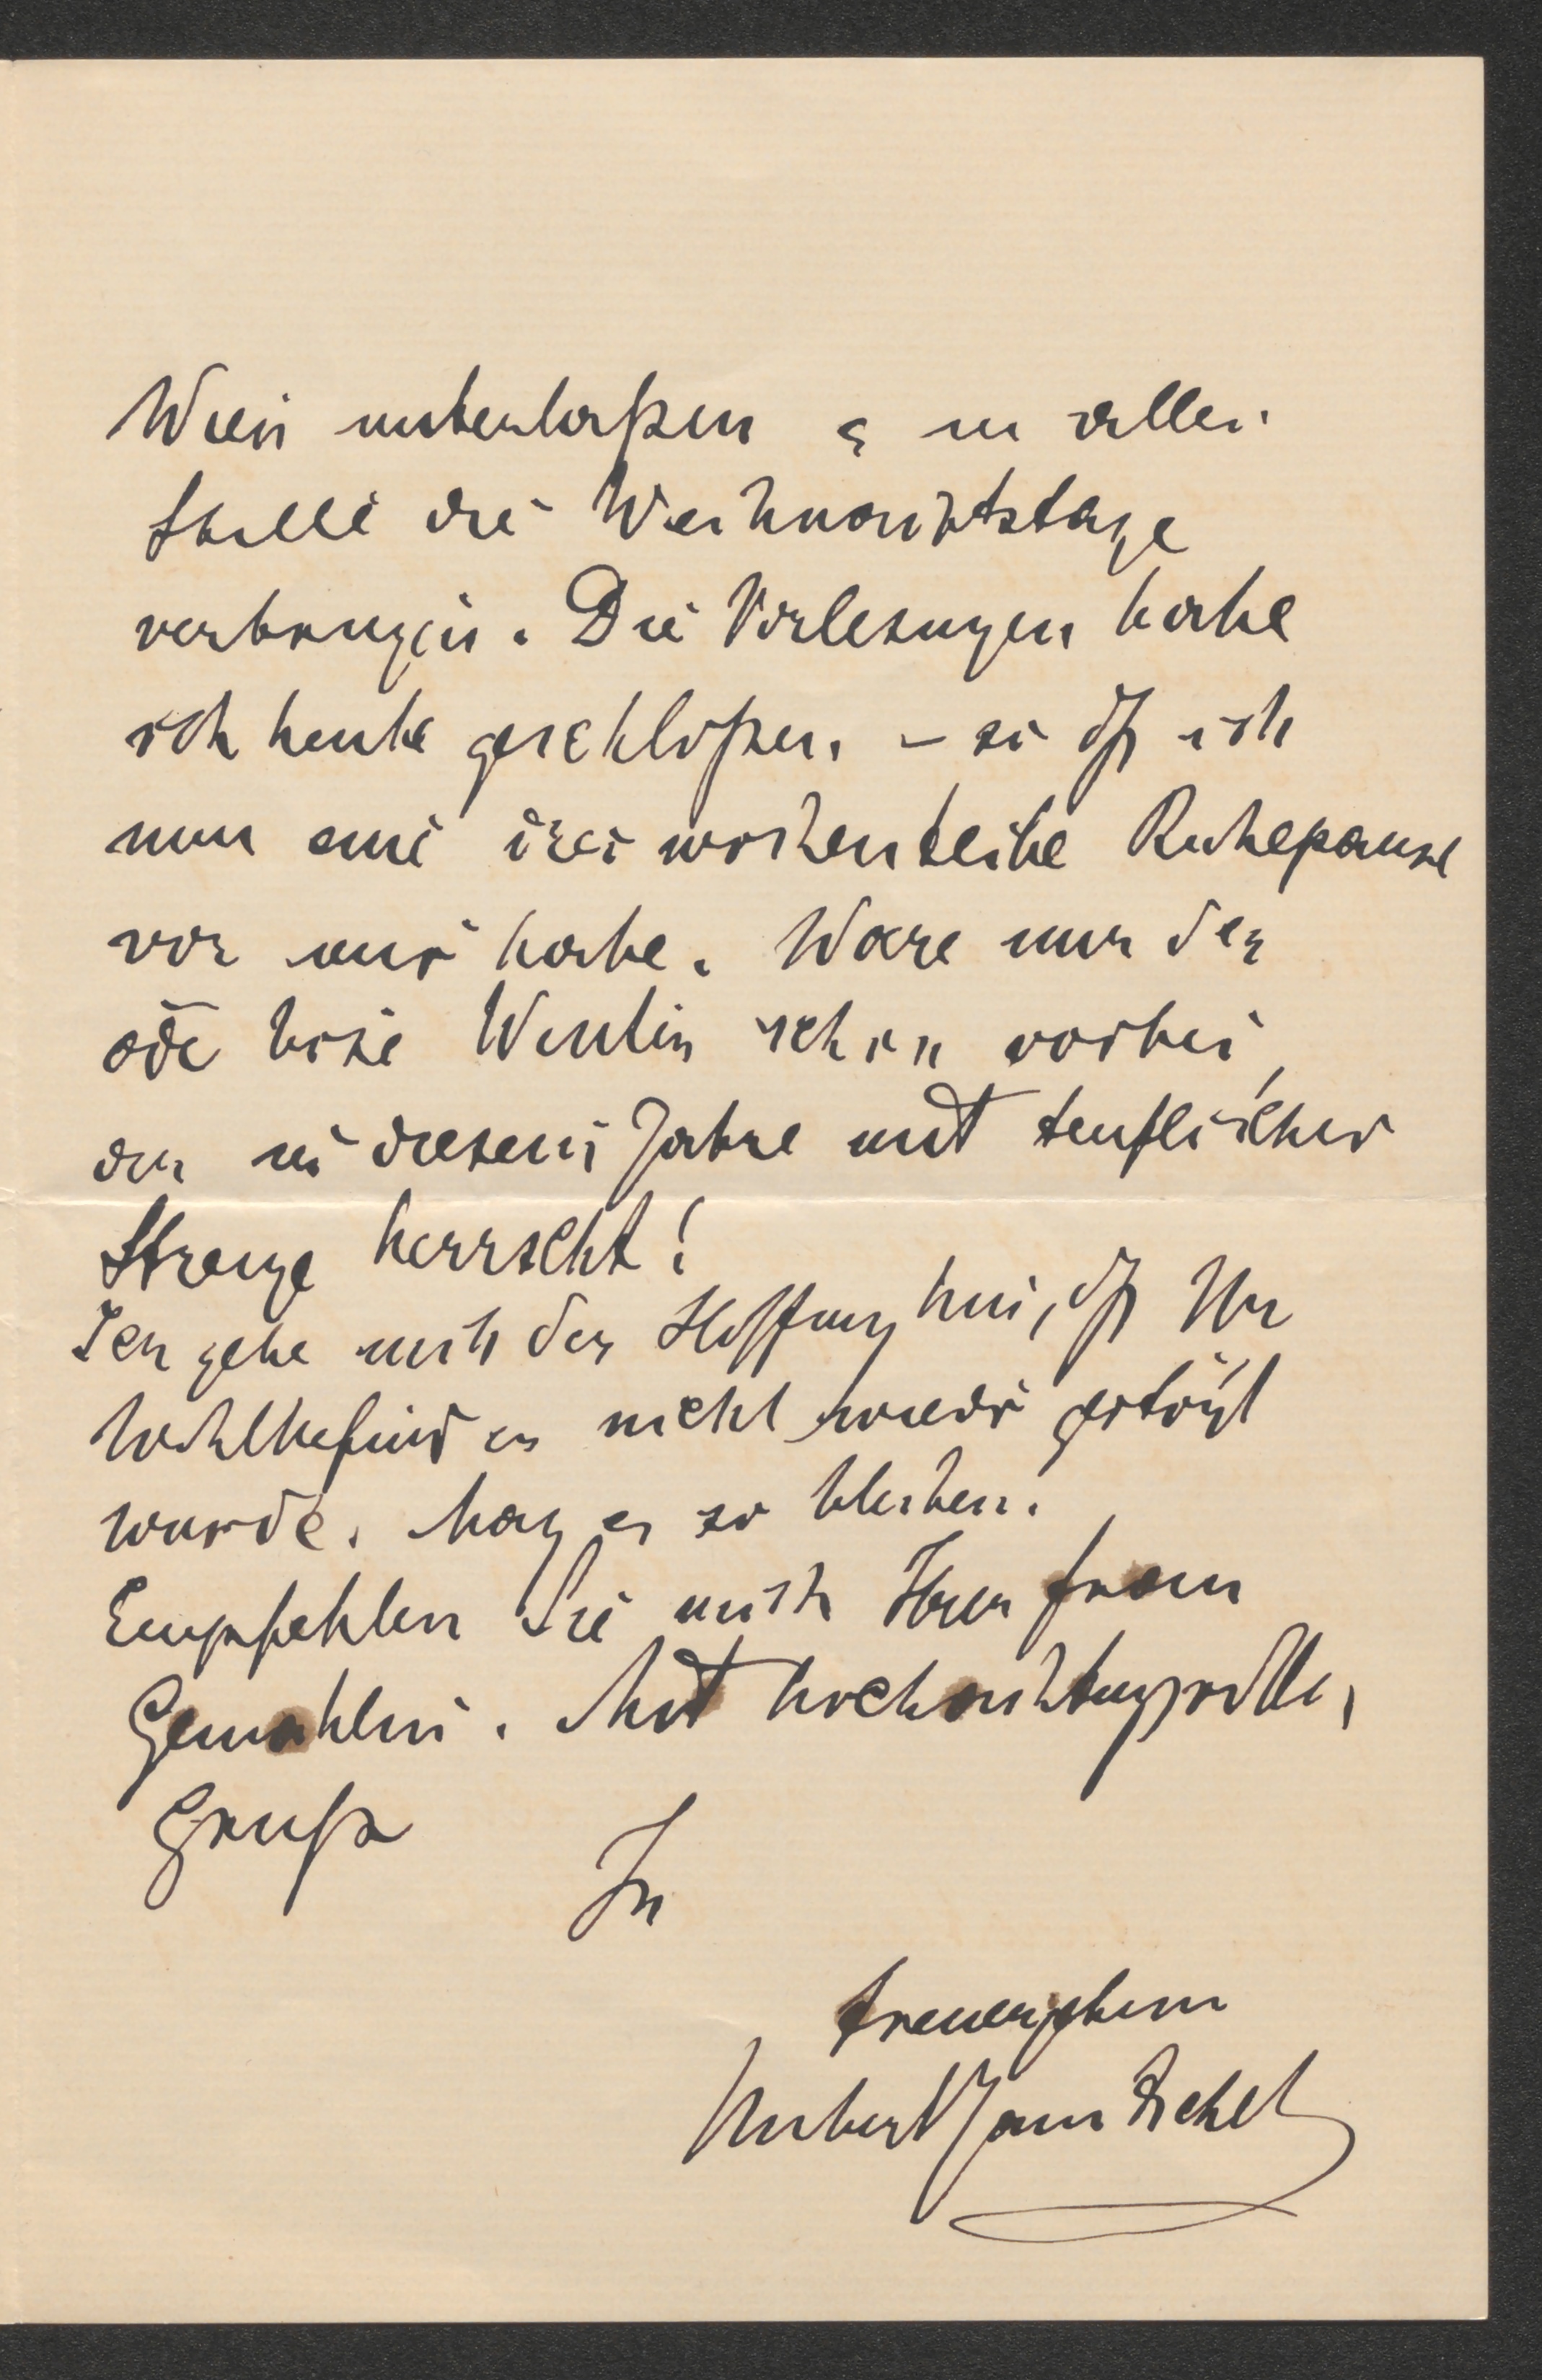 Wien unterlaßen & in aller
Stille die Weihnachtstage
verbringen. Die Vorlesungen habe
ich heute geschloßen. – so dß ich
nun eine drei wochentliche Ruhepause
vor mir habe. Wäre nur der
öde böse Winter schon vorbei,
der in diesem Jahre mit teuflischer
Strenge herrscht!
Ich gebe mich der Hoffnung hin, dß Ihr
Wohlbefinden nicht wieder gestört
wurde. Mag es so bleiben.
Empfehlen Sie mich Ihrer Frau
Gemahlin. Mit hochachtungsvollem
Gruße
Ihr
treuergebener
Hubert Janitschek